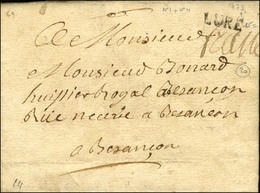 LURE
A Monsieur
Monsieur Bonard
huissier Royal a Besançon
Rue neuve a Besançon
a Besançon